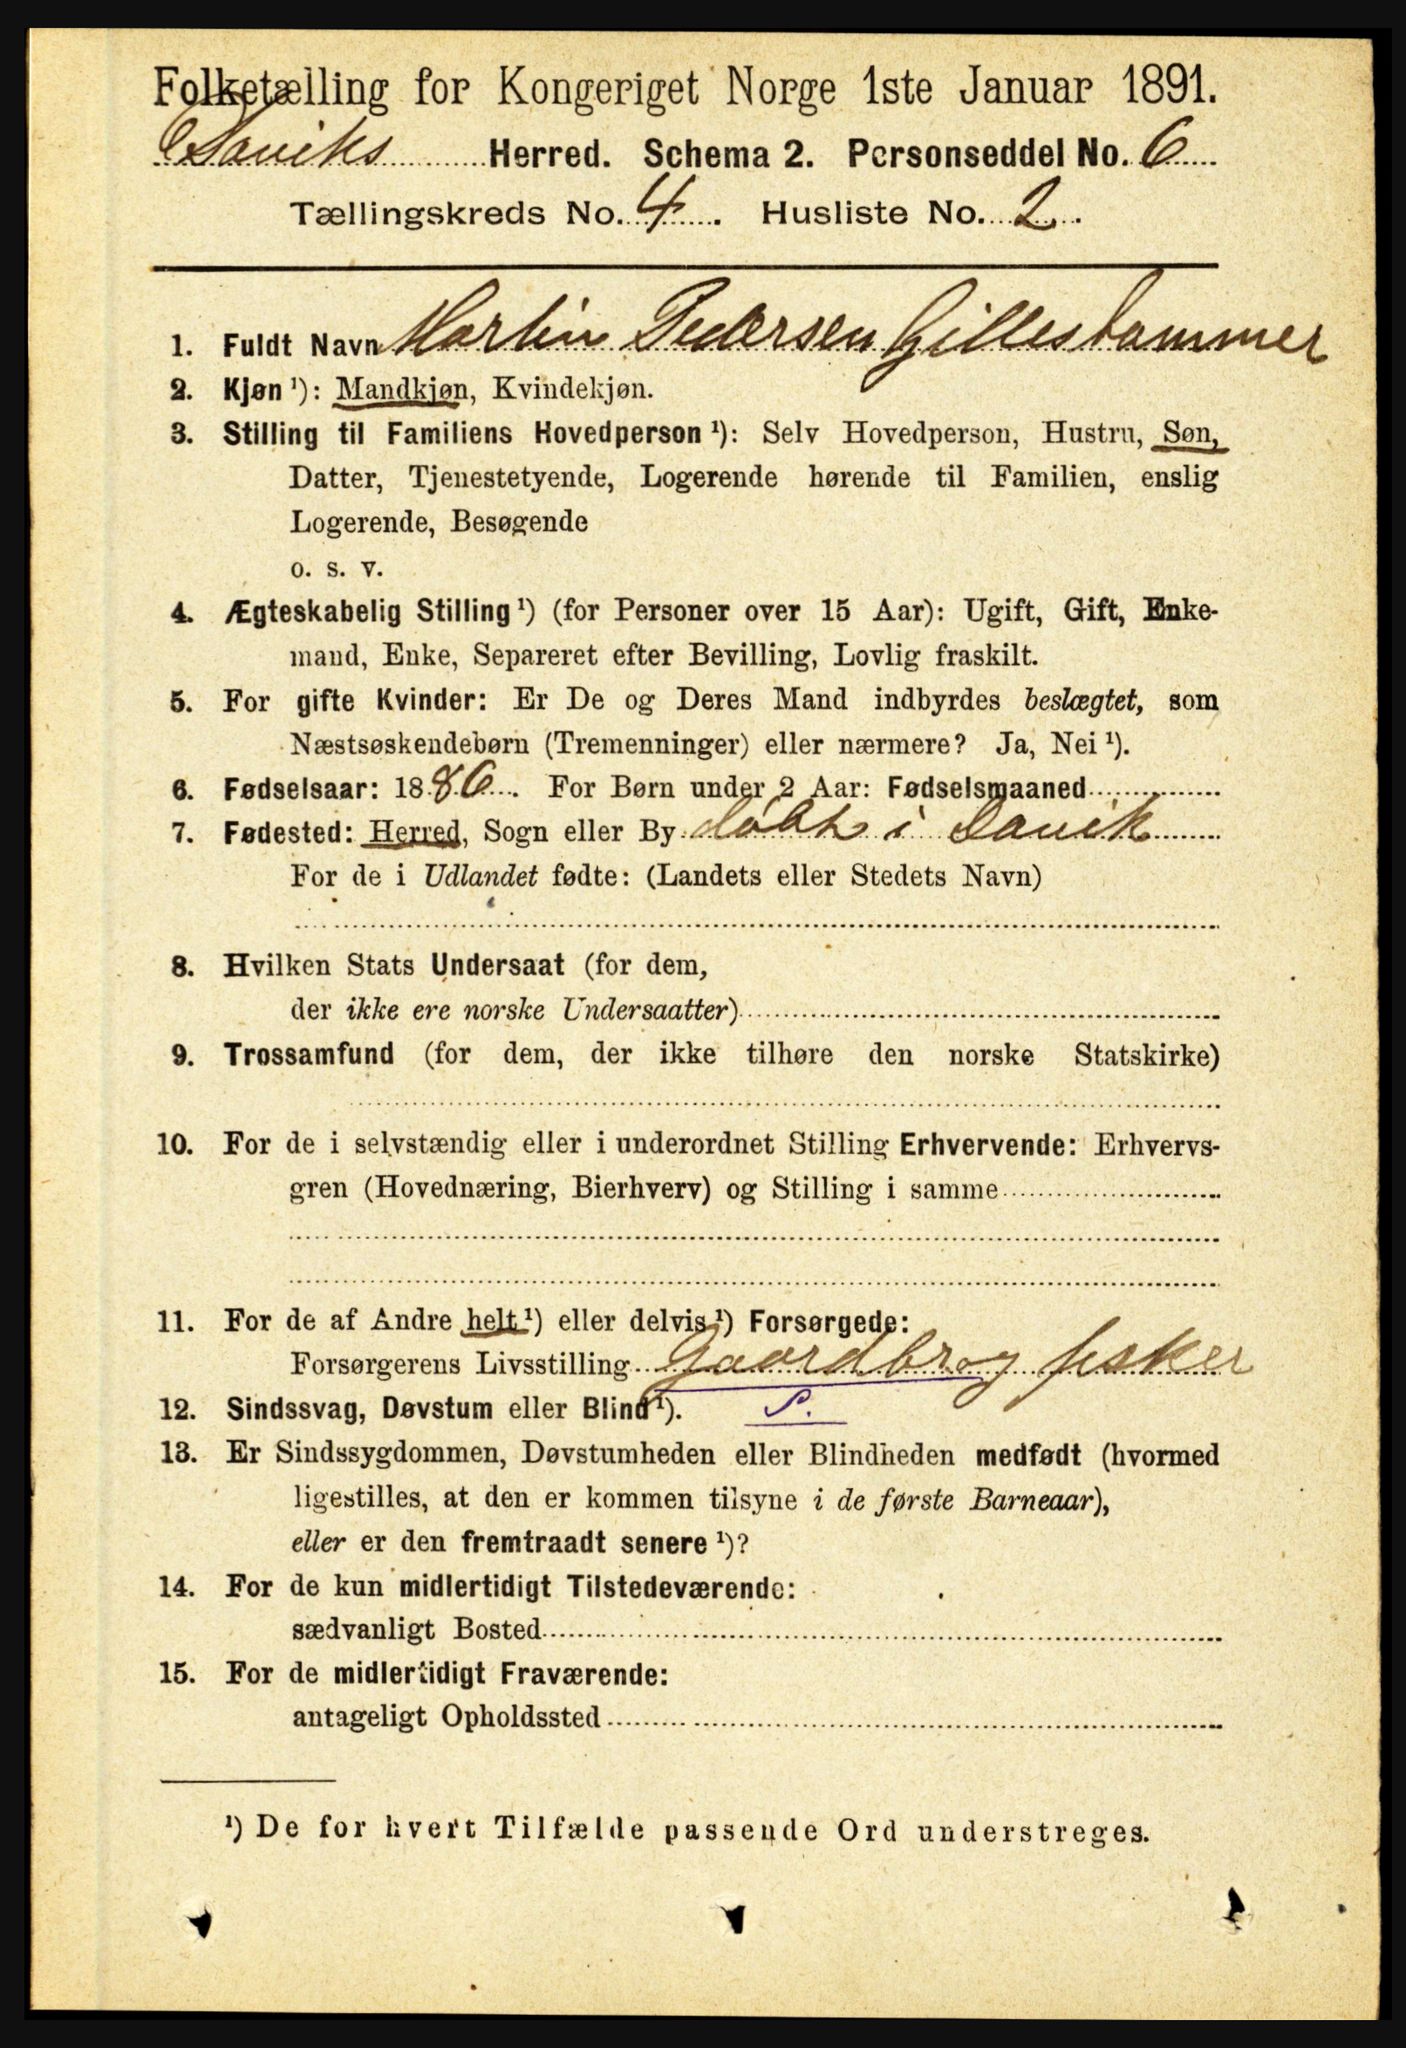 Folketælling for Kongeriget Norge 1ste Januar 1891.
Daviks Herred. Schema 2. Personseddel No. 6
Tællingskreds No. 4. Husliste No. 2.
1. Fuldt Navn Martin Pedersen Gillestammer
2. Kjøn ¹): Mandkjøn, Kvindekjøn.
3. Stilling til Familiens Hovedperson ¹): Selv Hovedperson, Hustru, Søn,
Datter, Tjenestetyende, Logerende hørende til Familien, enslig
Logerende, Besøgende
o. s. v.
4. Ægteskabelig Stilling ¹) (for Personer over 15 Aar): Ugift, Gift, Enke-
mand, Enke, Separeret efter Bevilling, Lovlig fraskilt.
5. For gifte Kvinder: Er De og Deres Mand indbyrdes beslægtet, som
Næstsøskendebørn (Tremenninger) eller nærmere? Ja, Nei ¹).
6. Fødselsaar: 1886. For Børn under 2 Aar: Fødselsmaaned
7. Fødested: Herred, Sogn eller By døbt i Davik
For de i Udlandet fødte: (Landets eller Stedets Navn)
8. Hvilken Stats Undersaat (for dem,
der ikke ere norske Undersaatter)
9. Trossamfund (for dem, der ikke tilhøre den norske Statskirke)
10. For de i selvstændig eller i underordnet Stilling Erhvervende: Erhvervs-
gren (Hovednæring, Bierhverv) og Stilling i samme
11. For de af Andre helt ¹) eller delvis ¹) Forsørgede:
Forsørgerens Livsstilling Gaardbr og fisker
12. Sindssvag, Døvstum eller Blind ¹). S.
13. Er Sindssygdommen, Døvstumheden eller Blindheden medfødt (hvormed
ligestilles, at den er kommen tilsyne i de første Barneaar),
eller er den fremtraadt senere ¹)?
14. For de kun midlertidigt Tilstedeværende:
sædvanligt Bosted
15. For de midlertidigt Fraværende:
antageligt Opholdssted
¹) De for hvert Tilfælde passende Ord understreges.